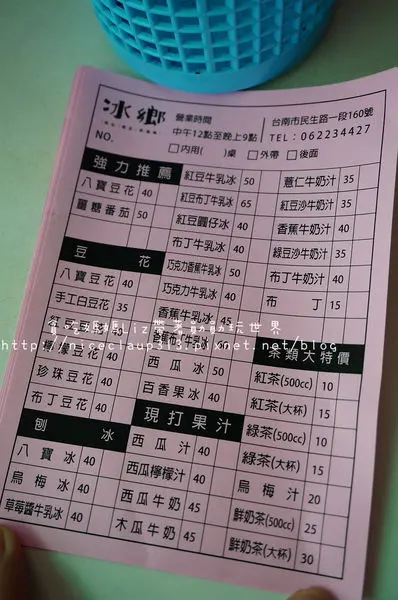 冰鄉
營業時間
中午12點至晚上9點
台南市民生路一段160號
TEL：062234427
NO.
□內用( )桌 □外帶 □後面
強力推薦
八寶豆花 40
薑糖番茄 50
豆花
八寶豆花 40
手工白豆花 35
檸檬豆花 40
珍珠豆花 40
布丁豆花 40
刨冰
八寶冰 40
烏梅冰 40
草莓醬牛乳冰 40
紅豆牛乳冰 50
紅豆布丁牛乳冰 65
紅豆圓仔冰 40
布丁牛乳冰 40
巧克力香蕉牛乳冰 50
巧克力牛乳冰 40
香蕉牛乳冰 45
西瓜冰 50
百香果冰 40
現打果汁
西瓜汁 40
西瓜檸檬汁 40
西瓜牛奶 45
木瓜牛奶 45
薏仁牛奶汁 35
紅豆沙牛奶汁 35
香蕉牛奶汁 40
綠豆沙牛奶汁 35
布丁牛奶汁 40
布丁 15
茶類大特價
紅茶(500cc) 10
紅茶(大杯) 15
綠茶(500cc) 10
綠茶(大杯) 15
烏梅汁 20
鮮奶茶(500cc) 25
鮮奶茶(大杯) 30
貪吃媽媽Liz帶著動動玩世界
http://niceclaup513.pixnet.net/blog